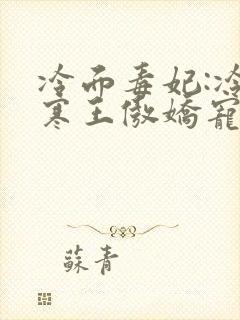 冷面毒妃:冷
寒王傲嬌寵
蘇青